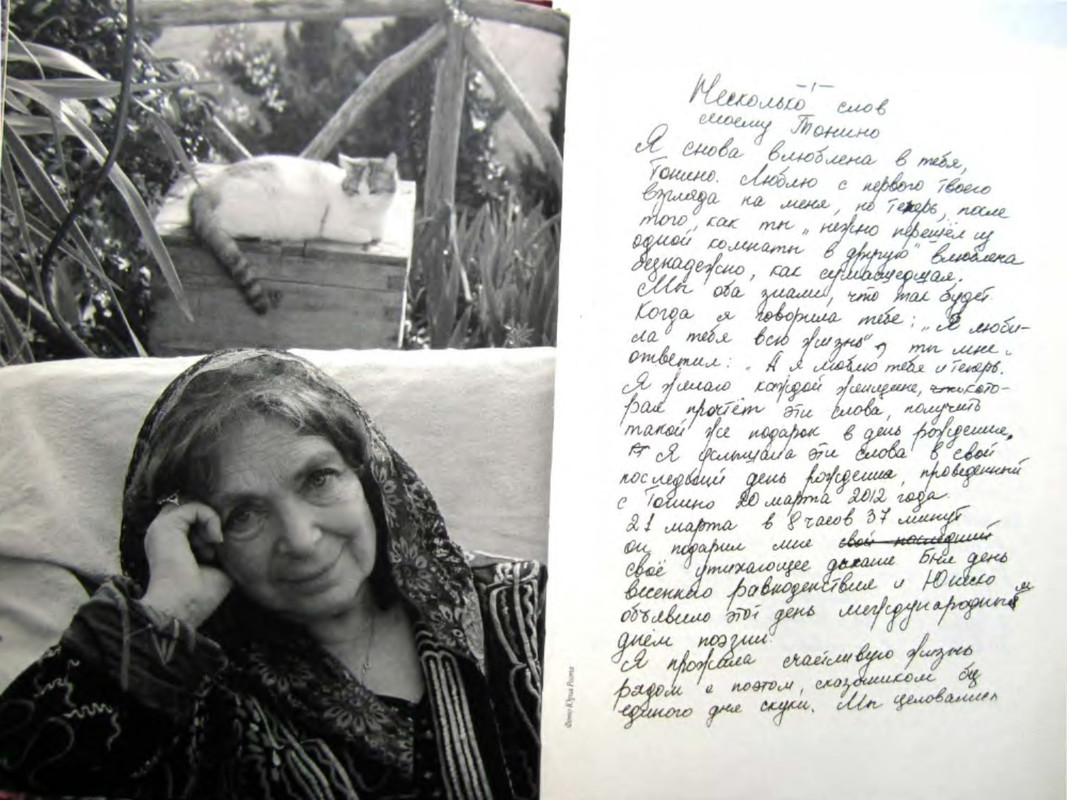 -1-
Несколько слов
моему Тонино
Я снова влюблена в тебя,
Тонино. Люблю с первого твоего
взгляда на меня, но теперь, после
того, как ты „нежно перешёл из
одной комнаты в другую" влюблена
безнадежно, как сумасшедшая.
Мы оба знали, что так будет.
Когда я говорила тебе: „Я люби-
ла тебя всю жизнь", ты мне
ответил: „А я люблю тебя и теперь.
Я желаю каждой женщине, кото-
рая прочтёт эти слова, получить
такой же подарок в день рождения.
Я услышала эти слова в свой
последний день рождения, проведенный
с Тонино 20 марта 2012 года.
21 марта в 8 часов 37 минут
он подарил мне свой последний
своё утихающее дыхание Был день
весеннего равноденствия и Юнеско
объявило этот день международным
днём поэзии.
Я прожила счастливую жизнь
рядом с поэтом, сказочником без
единого дня скуки. Мы целовались
Фото Юрия Роста